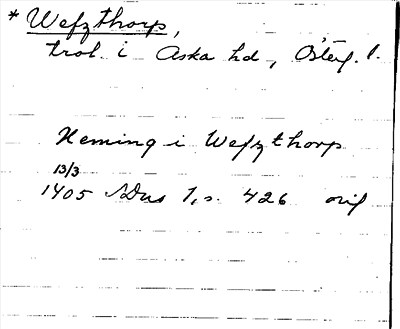 * Wefzthorp,
trol. i Aska hd, Österg. l.
Heming i Wefzthorp
13/3
1405 SDns 1, s. 426 orig